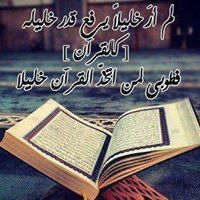 لم أرَ خليلاً يرفع قدر خليله
[ كالقرآن ]
فطوبى لمن اتخذ القرآن خليلا